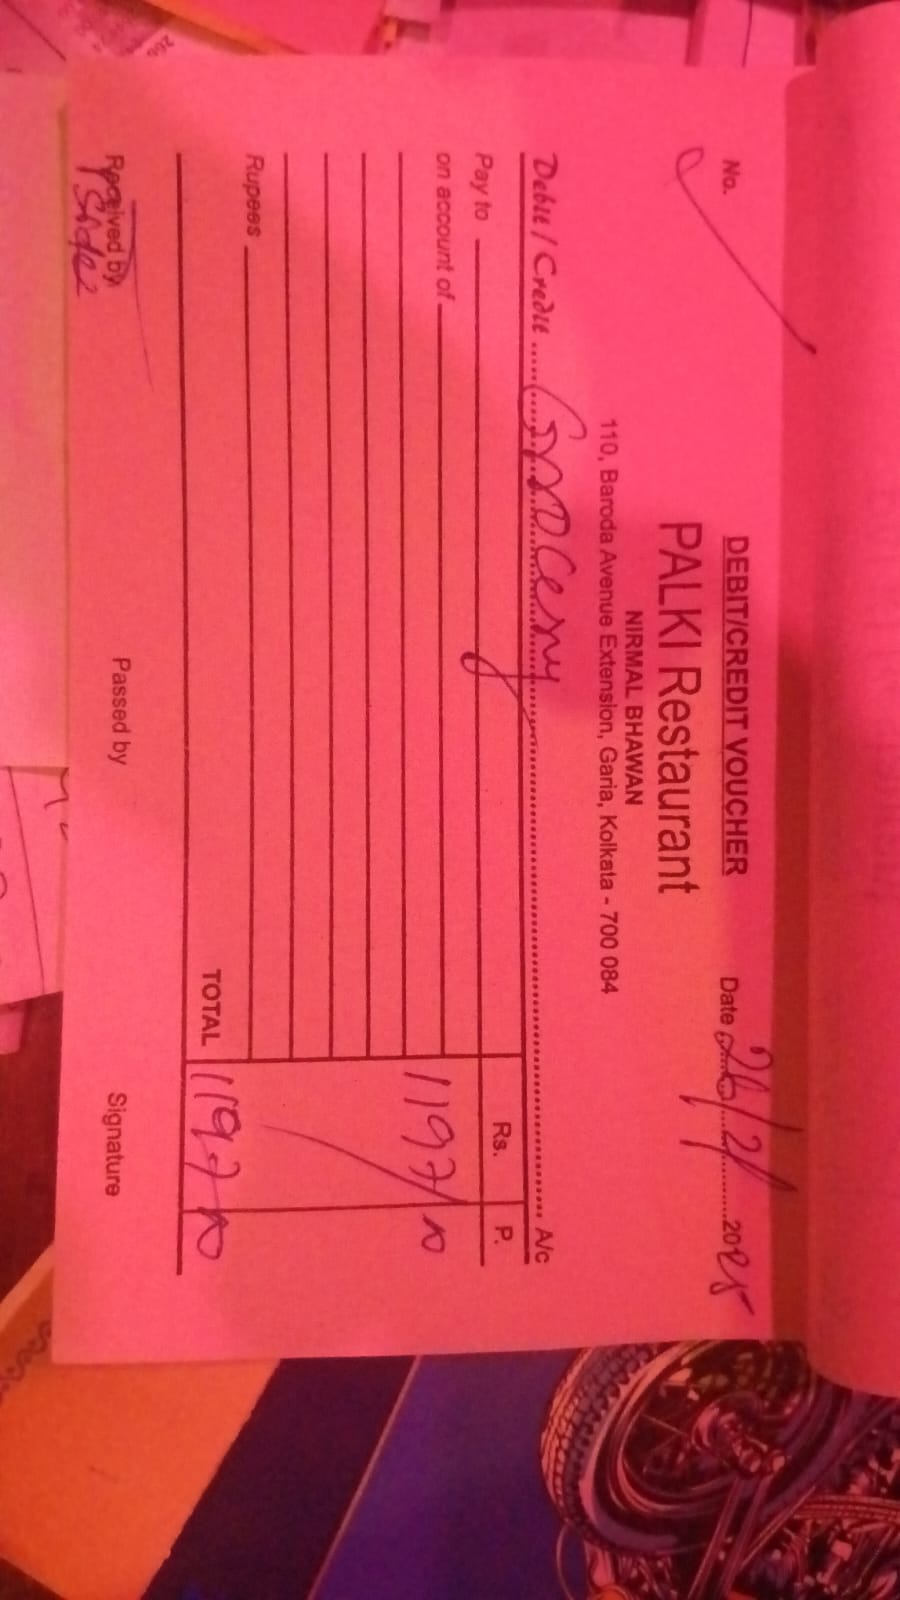 DEBIT/CREDIT VOUCHER
No.
Date 26/2/2025
PALKI Restaurant
NIRMAL BHAWAN
110, Baroda Avenue Extension, Garia, Kolkata - 700 084
Debit / Credit Grocery A/c
Pay to Rs. P.
on account of
1197/10
Rupees
TOTAL 1197 10
Received by Passed by Signature